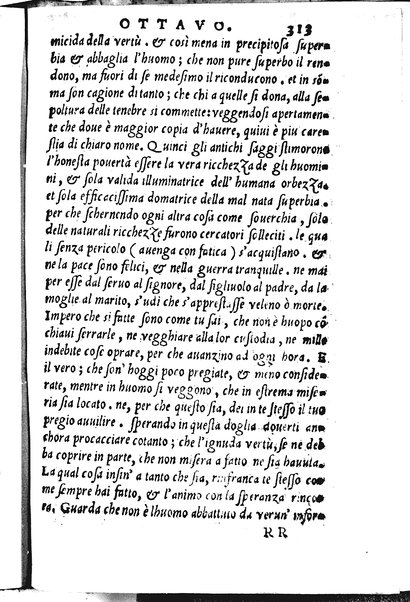 OTTAVO. 313
micida della vertù. & così mena in precipitosa super
bia & abbaglia l'huomo; che non pure superbo il ren
dono, ma fuori di se medesimo il riconducono. et in sõ
ma son cagione di tanto; che chi a quelle si dona, alla se
poltura delle tenebre si commette: veggendosi apertamen
te che doue è maggior copia d'hauere, quiui è piu care
stia di chiaro nome. Quinci gli antichi saggi stimorono
l'honesta pouertà essere la vera ricchezza de gli huomi
ni, & sola valida illuminatrice dell'humana orbezza.
et sola efficacissima domatrice della mal nata superbia.
per che schernendo ogni altra cosa come souerchia, solo
delle naturali ricchezze furono cercatori solleciti. le qua
li senza pericolo (auenga con fatica) s'acquistano. &
ne la pace sono felici, & nella guerra tranquille. ne mai
per esse dal seruo al signore, dal figliuolo al padre, da la
moglie al marito, s'udi che s'apprestasse veleno ò morte.
Impero che si fatte sono come tu sai, che non è huopo cõ
chiaui serrarle, ne vegghiare alla lor custodia, ne mille
indebite cose oprare, per che auanzino ad ogni hora. E
il vero; che son' hoggi poco pregiate, & meno conside-
rate, mentre in huomo si veggono, che in estrema mise-
ria sia locato. ne, per che questo sia, dei in te stesso il tuo
pregio auuilire. sperando in questa doglia douerti an
chora procacciare cotanto; che l'ignuda vertù, se ne deb
ba coprire in parte, che non misera a fatto ne sia hauuta.
La qual cosa insin' a tanto che sia, rinfranca te stesso co
me sempre hai fatto, & l'animo con la speranza rinco
ra. Guarda che non è l'huomo abbattuto da verun' infor
RR